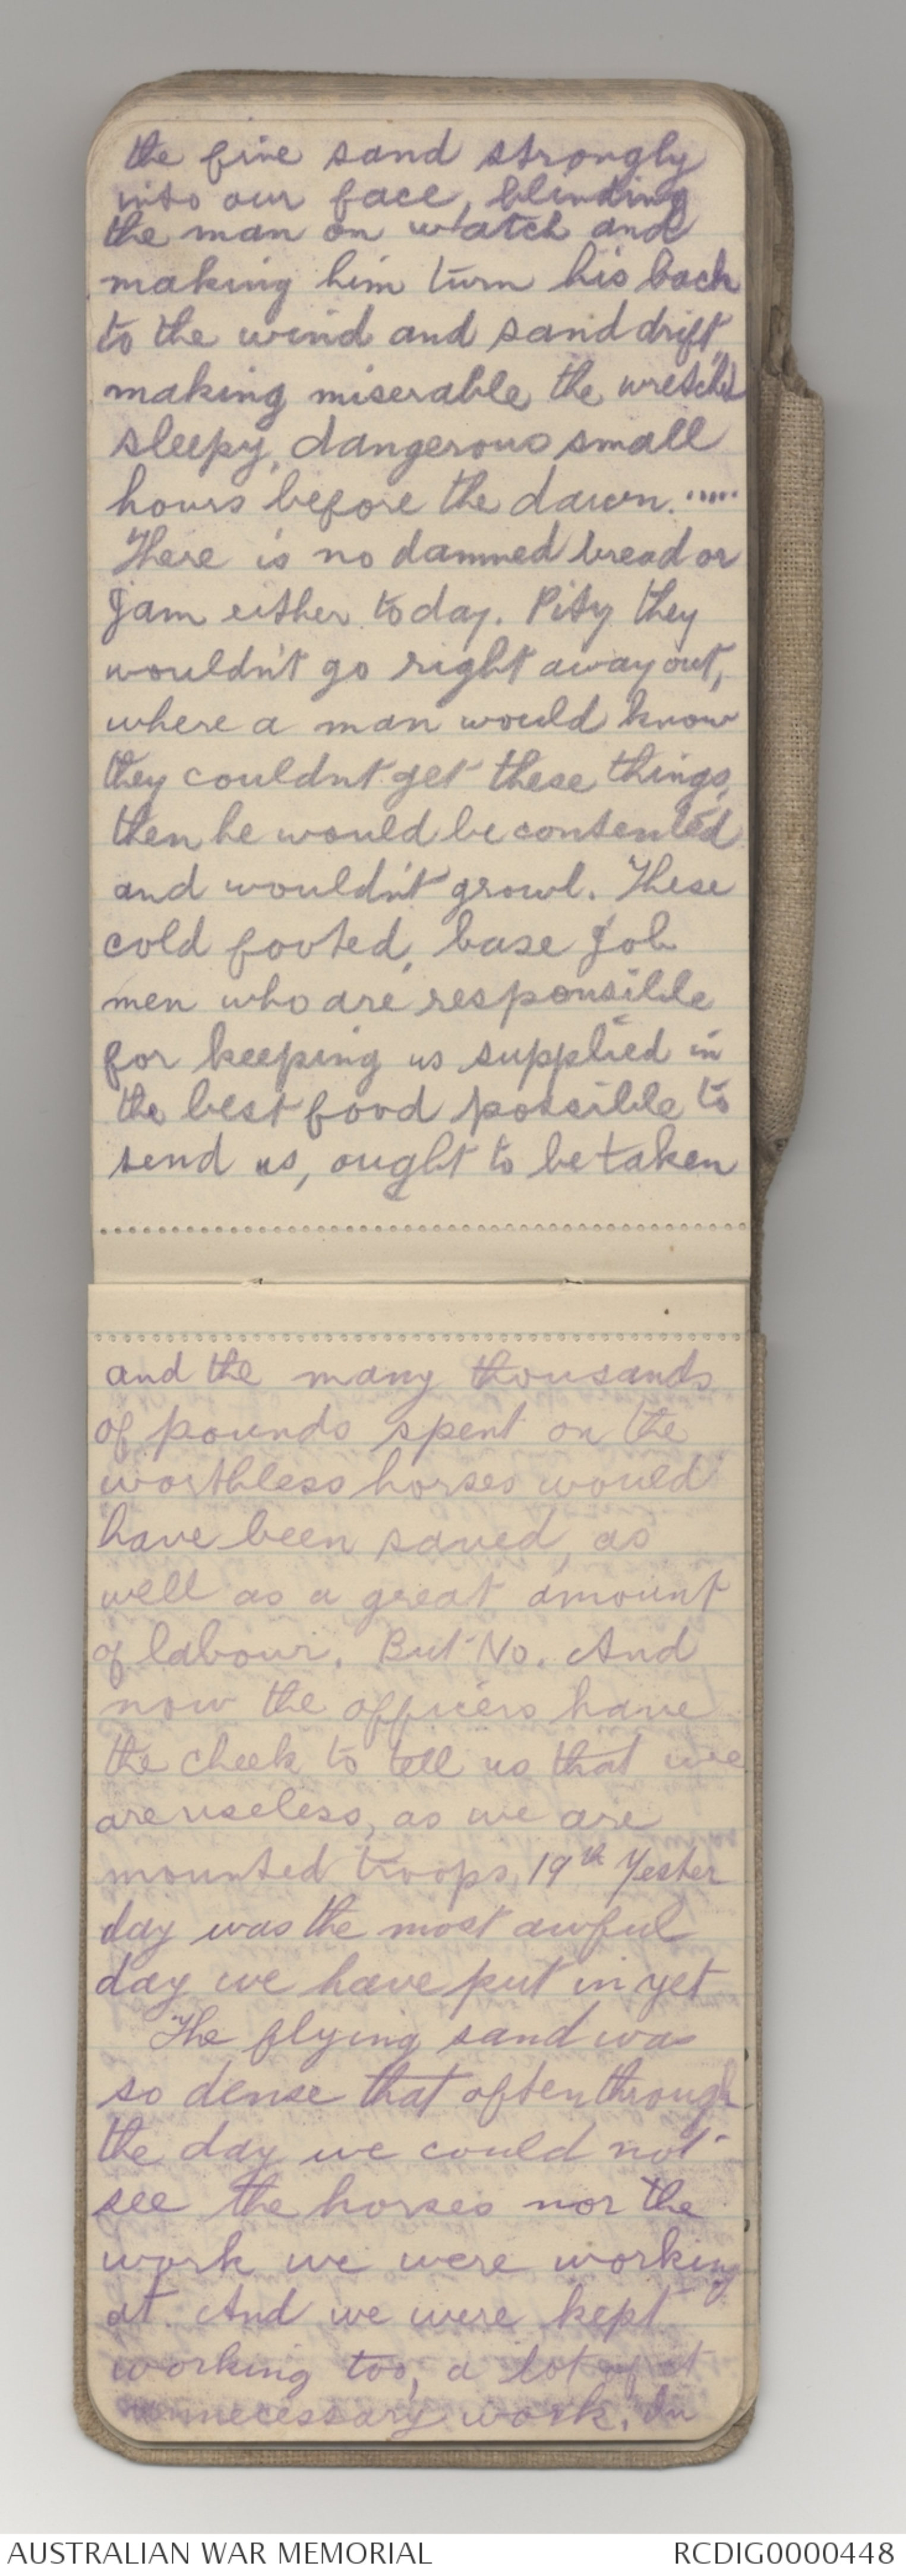 the fine sand strongly
into our face, blinding
the man on watch and
making him turn his back
to the wind and sand drift,
making miserable the wretched
sleepy, dangerous small
hours before the dawn. .....
There is no damned bread or
jam either today. Pity they
wouldn't go right away out,
where a man would know
they couldnt get these things,
then he would be contented
and wouldn't growl. These
cold footed, base job
men who are responsible
for keeping us supplied in
the best food possible to
send us, ought to be taken
and the many thousands
of pounds spent on the
worthless horses would
have been saved, as
well as a great amount
of labour. But No. And
now the officers have
the cheek to tell us that we
are useless, as we are
mounted troops. 19th Yester
day was the most awful
day we have put in yet
The flying sand was
so dense that often through
the day we could not
see the horses nor the
work we were working
at. And we were kept
working too, a lot of it
unnecessary work. In
AUSTRALIAN WAR MEMORIAL
RCDIG0000448